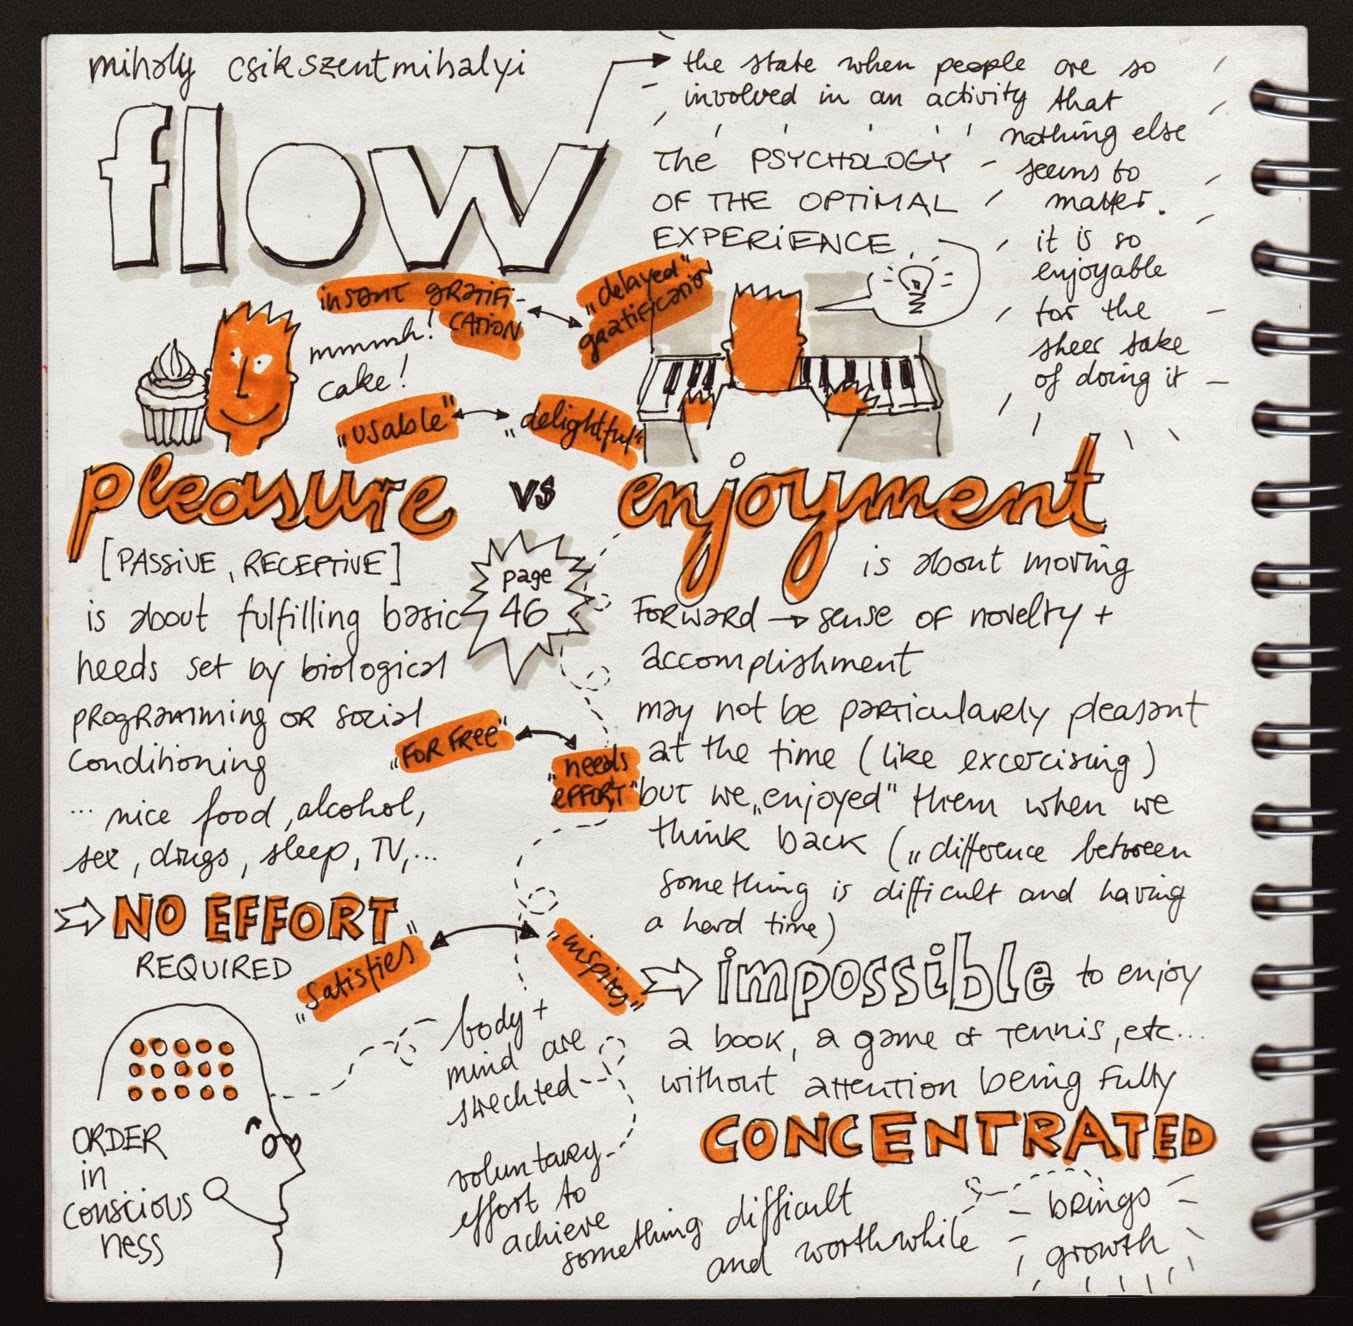 miholy csikszentmihalyi
flow
the state when people are so
involved in an activity that
nothing else
seems to
matter.
it is so
enjoyable
for the
sheer sake
of doing it
The PSYCHOLOGY
OF THE OPTIMAL
EXPERIENCE
insant gratifi-
CATION
"delayed"
gratification
mmmh!
cake!
"usable"
"delightful"
pleasure
vs
enjoyment
[PASSIVE, RECEPTIVE]
is about fulfilling basic
needs set by biological
programming or social
conditioning
... nice food, alcohol,
sex, drugs, sleep, TV,...
NO EFFORT
REQUIRED
page
46
is about moving
Forward → sense of novelty +
accomplishment
may not be particularly pleasant
at the time (like excercising)
but we „enjoyed" them when we
think back („difference between
something is difficult and having
a hard time)
"FOR FREE"
"needs
EFFORT"
"satisfies"
"inspires"
impossible to enjoy
a book, a game of tennis, etc...
without attention being fully
CONCENTRATED
ORDER
in
conscious
ness
body +
mind are
strechted
voluntary
effort to
achieve
something difficult
and worthwhile
brings
growth